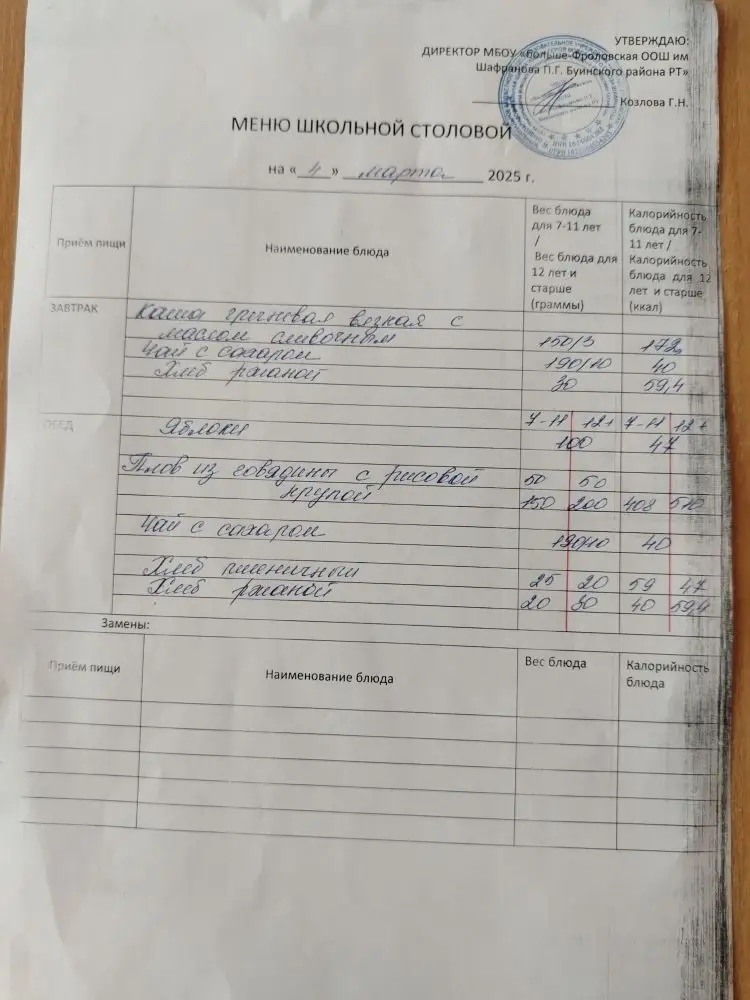 УТВЕРЖДАЮ:
ДИРЕКТОР МБОУ «Больше-Фроловская ООШ им
Шафранова П.Г. Буинского района РТ»
Козлова Г.Н.
МЕНЮ ШКОЛЬНОЙ СТОЛОВОЙ
на « 4 » марта 2025 г.
Приём пищи
Наименование блюда
Вес блюда
для 7-11 лет
/
Вес блюда для
12 лет и
старше
(граммы)
Калорийность
блюда для 7-
11 лет /
Калорийность
блюда для 12
лет и старше
(ккал)
ЗАВТРАК
Каша гречневая вязкая с
маслом сливочным 150/3 172
Чай с сахаром 190/10 40
Хлеб ржаной 30 59,4
ОБЕД
7-11 12+ 7-11 12+
Яблоки 100 47
Плов из говядины с рисовой 50 50
крупой 150 200 408 510
Чай с сахаром 190/10 40
Хлеб пшеничный 25 20 59 47
Хлеб ржаной 20 30 40 59,4
Замены:
Приём пищи
Наименование блюда
Вес блюда
Калорийность
блюда